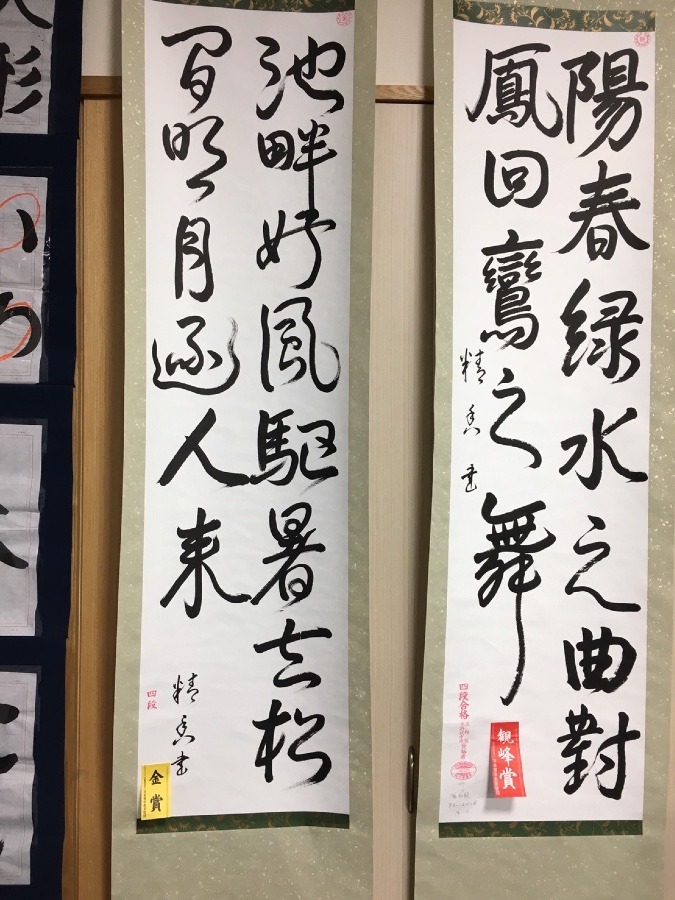 陽春緑水之曲對
鳳回鸞之舞
精香書
四段合格
観峰賞
池畔好風駈暑去松
間明月逐人来
精香書
四段
金賞
形